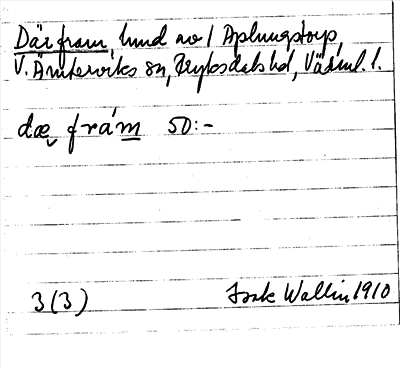 Där fram, lund no 1 Aplungstorp,
V. Ämterviks sn, Fryksdals hd, Värml. l.
dæ frá m 50:-
3(3) Isak Wallin 1910